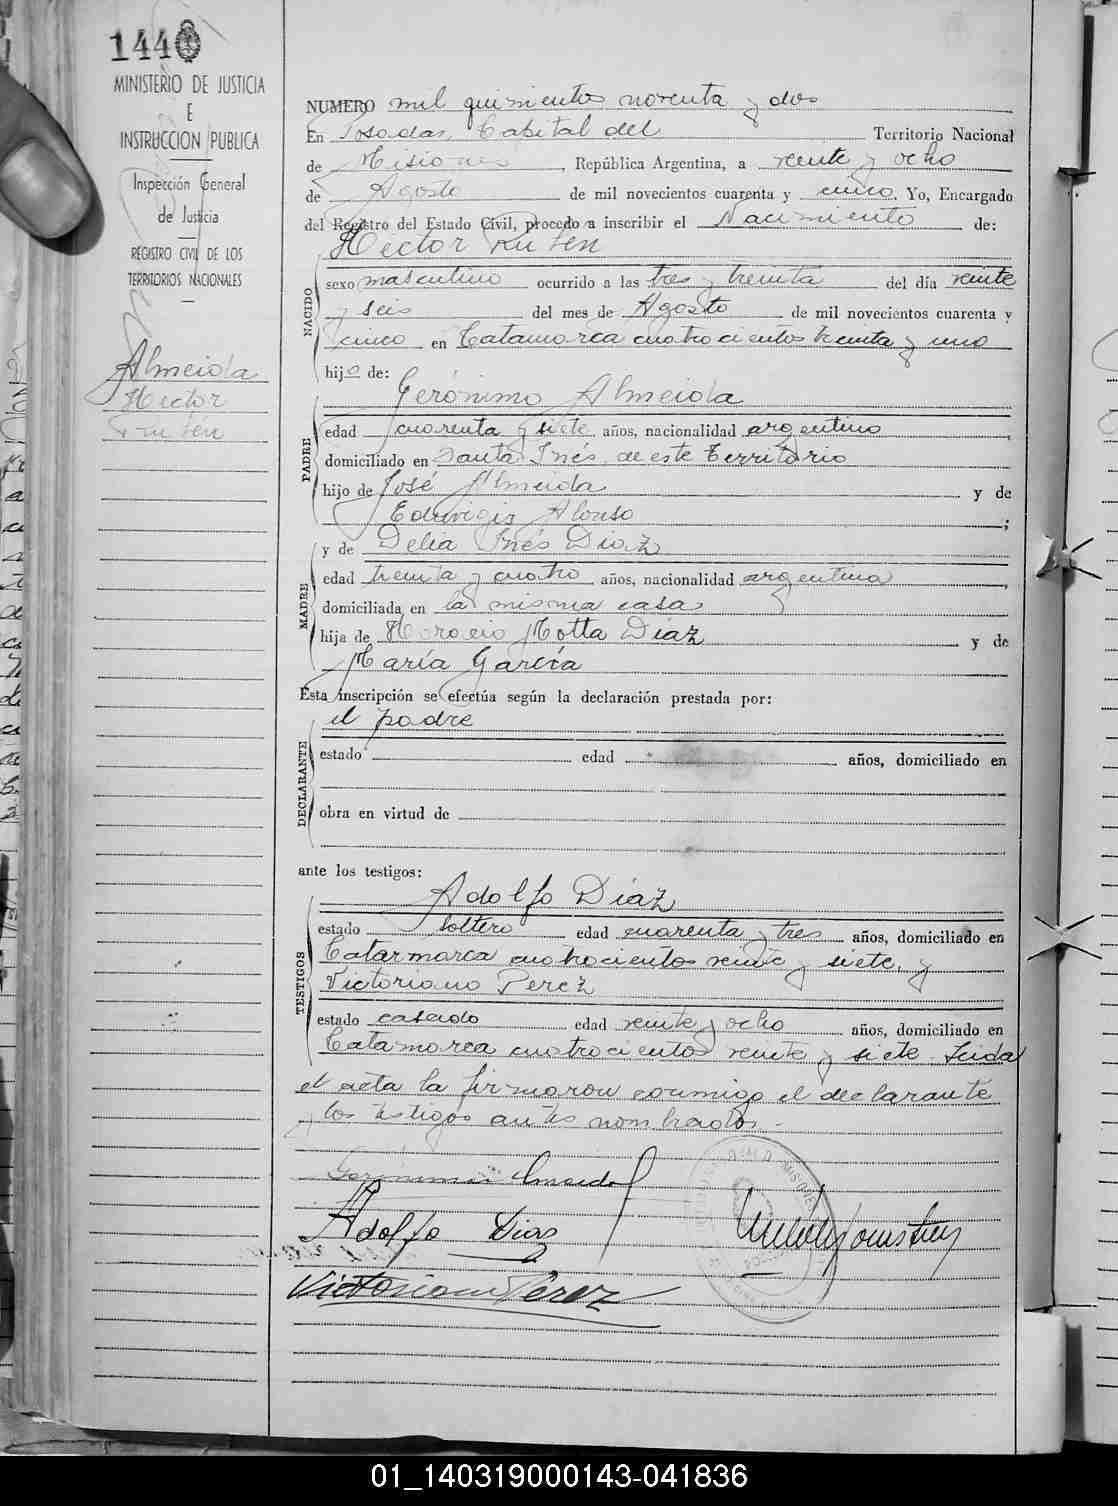 144
MINISTERIO DE JUSTICIA
E
INSTRUCCION PUBLICA
Inspección General
de Justicia
REGISTRO CIVIL DE LOS
TERRITORIOS NACIONALES
Almeida
Hector
Rubén
NUMERO mil quinientos noventa y dos
En Posadas, Capital del Territorio Nacional
de Misiones, República Argentina, a veinte y ocho
de Agosto de mil novecientos cuarenta y cinco. Yo, Encargado
del Registro del Estado Civil, procedo a inscribir el Nacimiento de:
Hector Rubén
NACIDO
sexo masculino ocurrido a las tres y treinta del día veinte
y seis del mes de Agosto de mil novecientos cuarenta y
cinco en Catamarca cuatrocientos treinta y uno
hijo de:
Gerónimo Almeida
PADRE
edad cuarenta y siete años, nacionalidad argentino
domiciliado en Santa Inés, de este Territorio
hijo de José Almeida y de
Eduvigis Alonso ;
y de Delia Inés Diaz
MADRE
edad treinta y cuatro años, nacionalidad argentina
domiciliada en la misma casa
hija de Horacio Motta Diaz y de
María García
Esta inscripción se efectúa según la declaración prestada por:
el padre
DECLARANTE
estado edad años, domiciliado en
obra en virtud de
ante los testigos:
Adolfo Díaz
TESTIGOS
estado soltero edad cuarenta y tres años, domiciliado en
Catarmarca cuatrocientos veinte y siete, y
Victoriano Perez
estado casado edad veinte y ocho años, domiciliado en
Catamarca cuatrocientos veinte y siete. Leida
el acta la firmaron conmigo el declarante
y los testigos antes nombrados.-
Gerónimo Almeida
Adolfo Dias
Victoriano Pérez
01_140319000143-041836